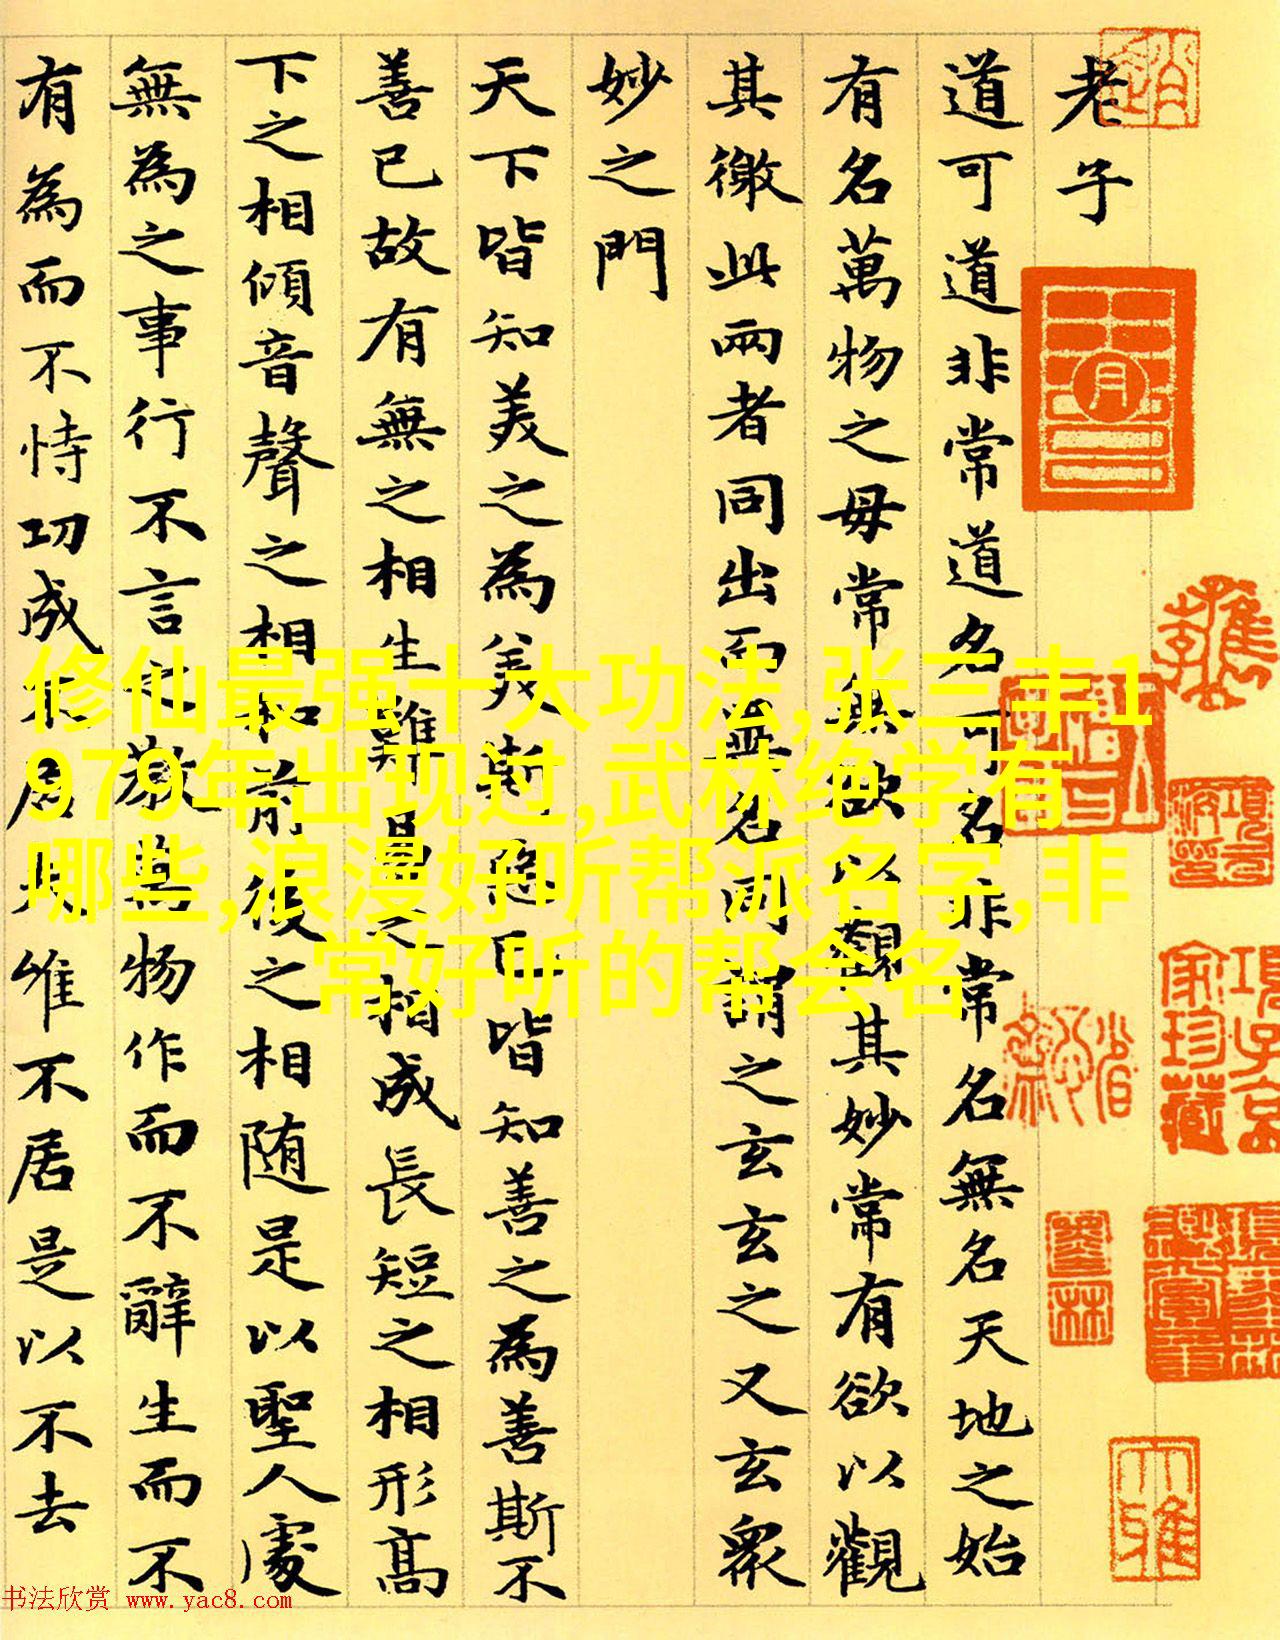 老子
道可道非常道名可名非常名無名天地之始
有名萬物之母常無欲以觀其妙常有欲以觀
其徼此兩者同出而異名同謂之玄玄之又玄衆
妙之門
天下皆知美之為美斯惡已皆知善之為善斯不
善已故有無之相生難易之相成長短之相形高
下之相傾音聲之相和前後之相随是以聖人處
無為之事行不言之教萬物作而不辭生而不
有為而不恃功成不居夫唯不居是以不去
修仙最强十大功法,张三丰1
979年出现过,武林绝学有
哪些,浪漫好听帮派名字,非
常好听的帮会名
书法欣赏 www.yac8.com